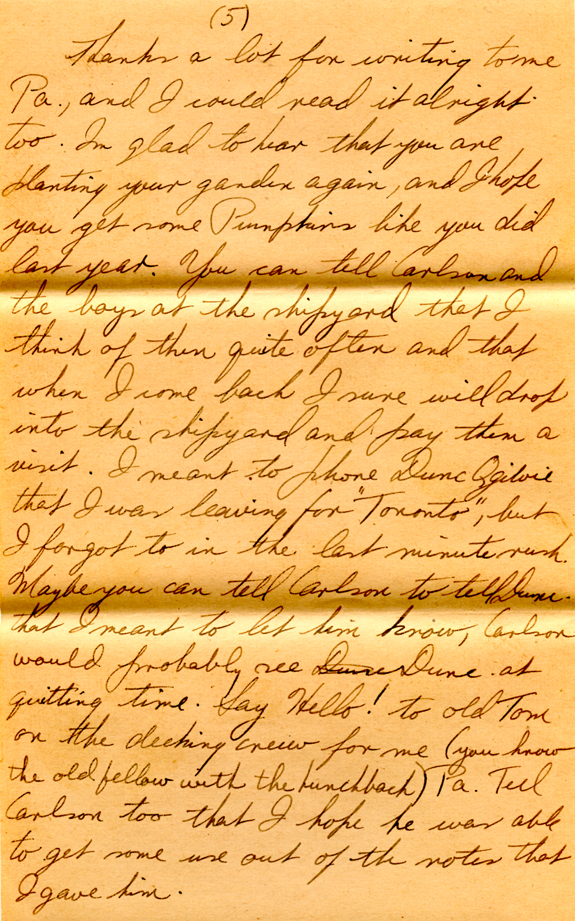 (5)
Thanks a lot for writing to me
Pa., and I could read it alright
too. Im glad to hear that you are
planting your garden again, and I hope
you get some Pumpkins like you did
last year. You can tell Carlson and
the boys at the shipyard that I
think of them quite often and that
when I come back I sure will drop
into the shipyard and pay them a
visit. I meant to phone Dunc Ogilvie
that I was leaving for "Toronto", but
I forgot to in the last minute rush.
Maybe you can tell Carlson to tell Dunc.
that I meant to let him know, Carlson
would probably see Dunc Dunc. at
quitting time. Say Hello! to old Tom
on the decking crew for me (you know
the old fellow with the hunchback) Pa. Tell
Carlson too that I hope he was able
to get some use out of the notes that
I gave him.